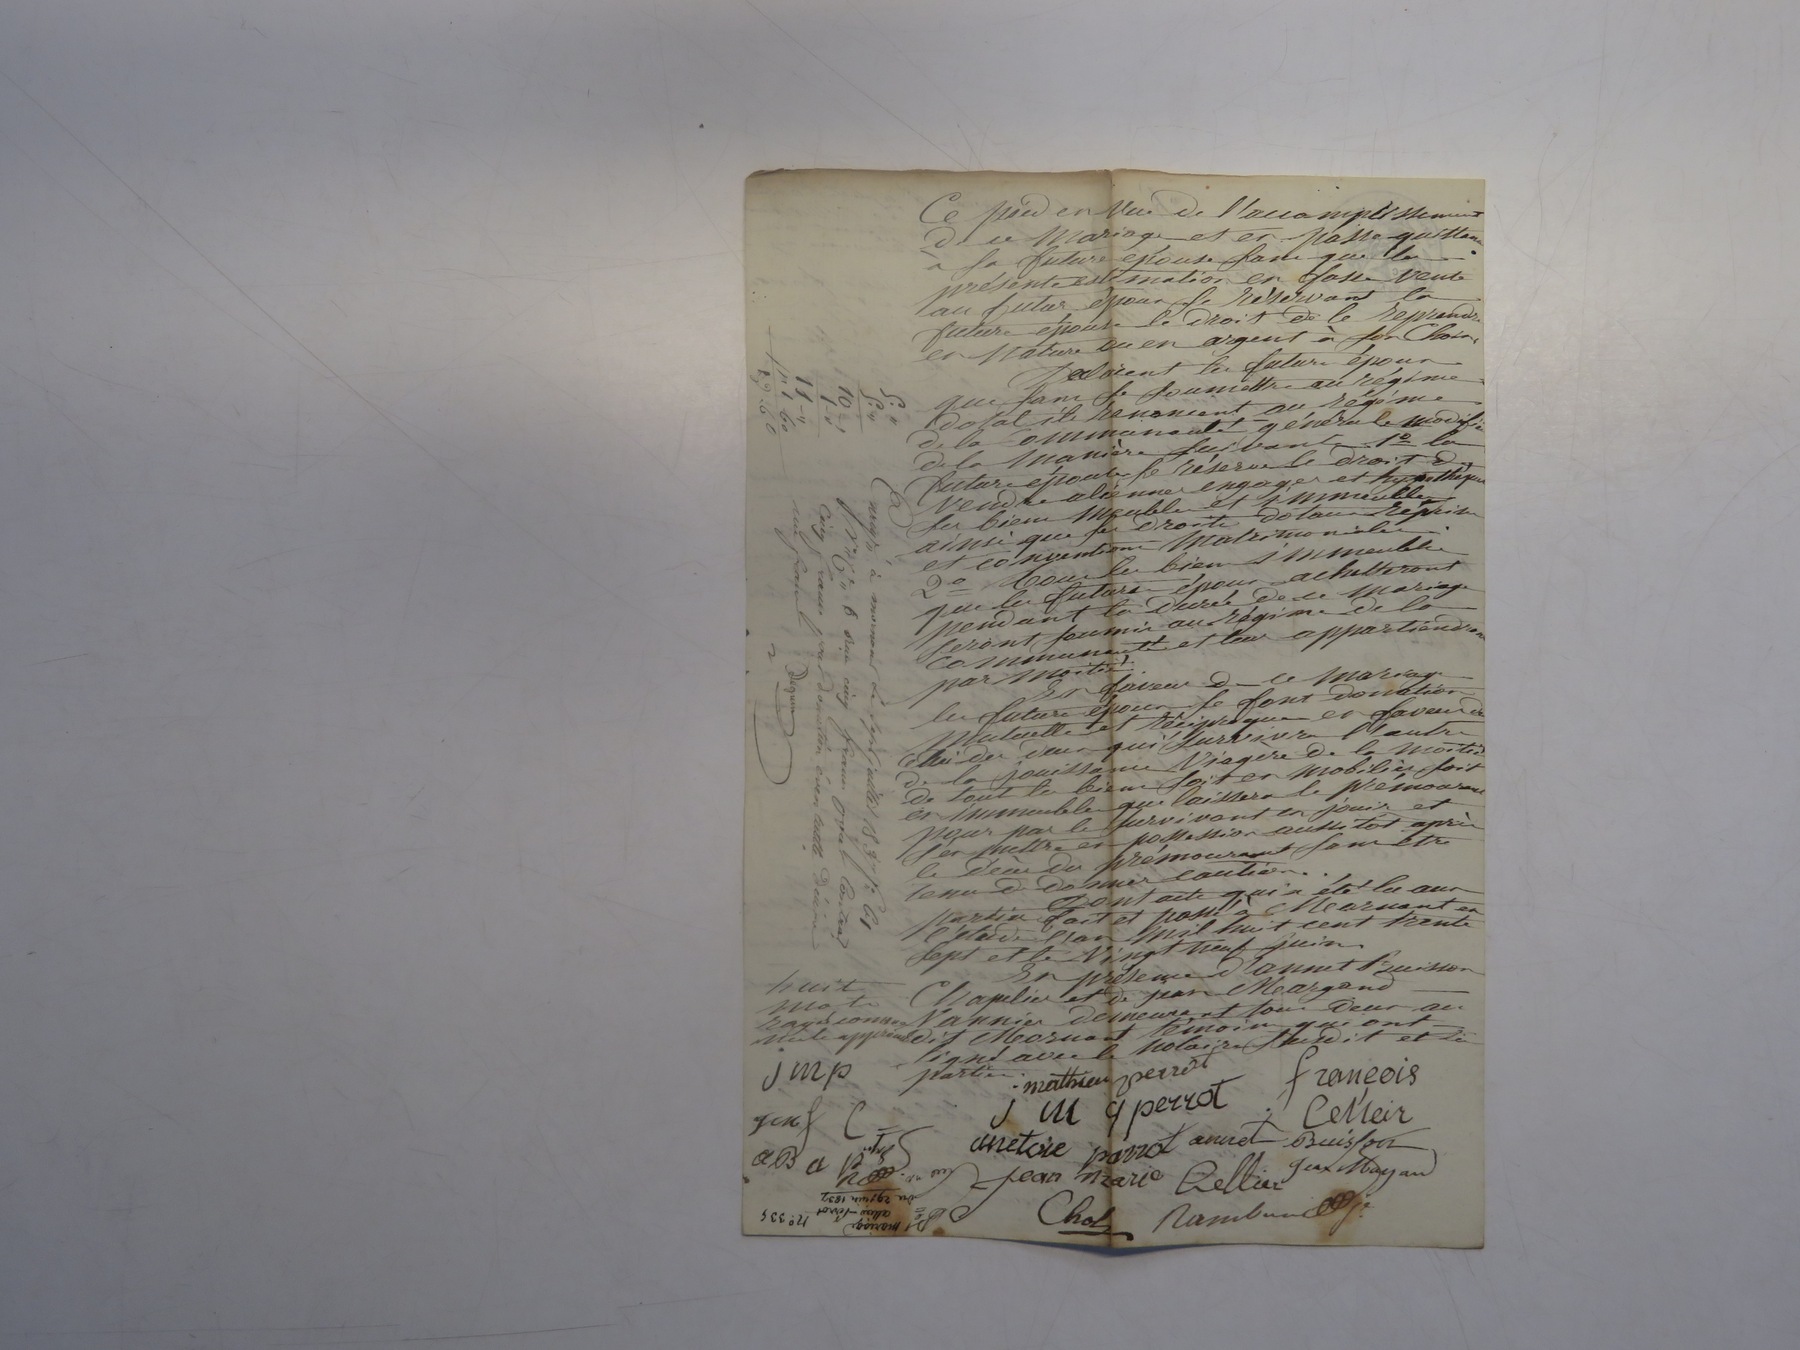 Ce pied en vue de l'accomplissement
de ce mariage et en passe quittance
à la future épouse sans que la
présente estimation en fasse vente
au futur époux se réservant la
future épouse le droit de le reprendre
en nature ou en argent à son choix,
les future époux
que sans se soumettre au régime
dotal ils renoncent au régime
de la Communauté générale modifié
de la manière suivante 1º la
future épouse se réserve le droit de
vendre aliénner engager et hypothéquer
ses biens meubles et immeubles
ainsi que ses droits dotaux reprise
et conventions matrimoniales.
2º Tous les biens immeubles
que les futurs époux achetteront
pendant la durée de ce mariage
seront soumis au régime de la
communauté et leur appartiendront
par moitié.
En faveur de ce mariage
les futurs époux se font donation
mutuelle et réciproque en faveur de
celui des deux qui survivra l'autre
de la jouissance viagère de la moitié
de tout les biens soit en mobilier soit
en immeubles que laissera le prémourant
pour par le survivant en jouir et
s'en mettre en possession aussitot après
le décès du prémourant sans être
tenu de donner caution.
Dont acte qui a été lu aux
parties fait et passé à Mornant en
l'étude l'an mil huit cent trente
sept et le vingt neuf juin.
En présence d'annet Buisson
Chapelier et de jean Margand
Vannier demeurant tous deux au
dit Mornant témoins qui ont
signé avec le notaire susdit et les
parties.
mathieu perrot
françois
J M perrot
Cellier
anetoie parrot
annet Buisson
jean marie Cellier
Chol
huit
mots
rayés comme
nuls approuvés
j m p
j C
a B
5 "
5 "
10 "
1 "
11 "
1 60
Enregé à mornant le sept juillet 1837 fº 61
cinq francs pour contrat
cinq francs pour donation éventuelle, décime
un franc
nº 334
du 29 juin 1837
mariage